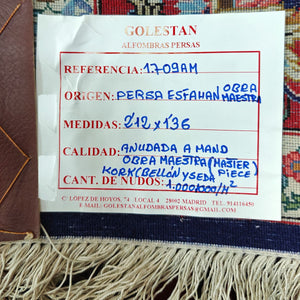 GOLESTAN
ALFOMBRAS PERSAS
REFERENCIA: 1709AM
ORIGEN: PERSA ESFAHAN OBRA MAESTRA
MEDIDAS: 212 x 136
CALIDAD: ANUDADA A MANO
OBRA MAESTRA (MASTER PIECE
KORK (BELLÓN Y SEDA
CANT. DE NUDOS: 1.000/000/M²
C/ LÓPEZ DE HOYOS, 74 28002 MADRID TEL: 914116450
E-MAIL: GOLESTANALFOMBRASPERSAS@GMAIL.COM